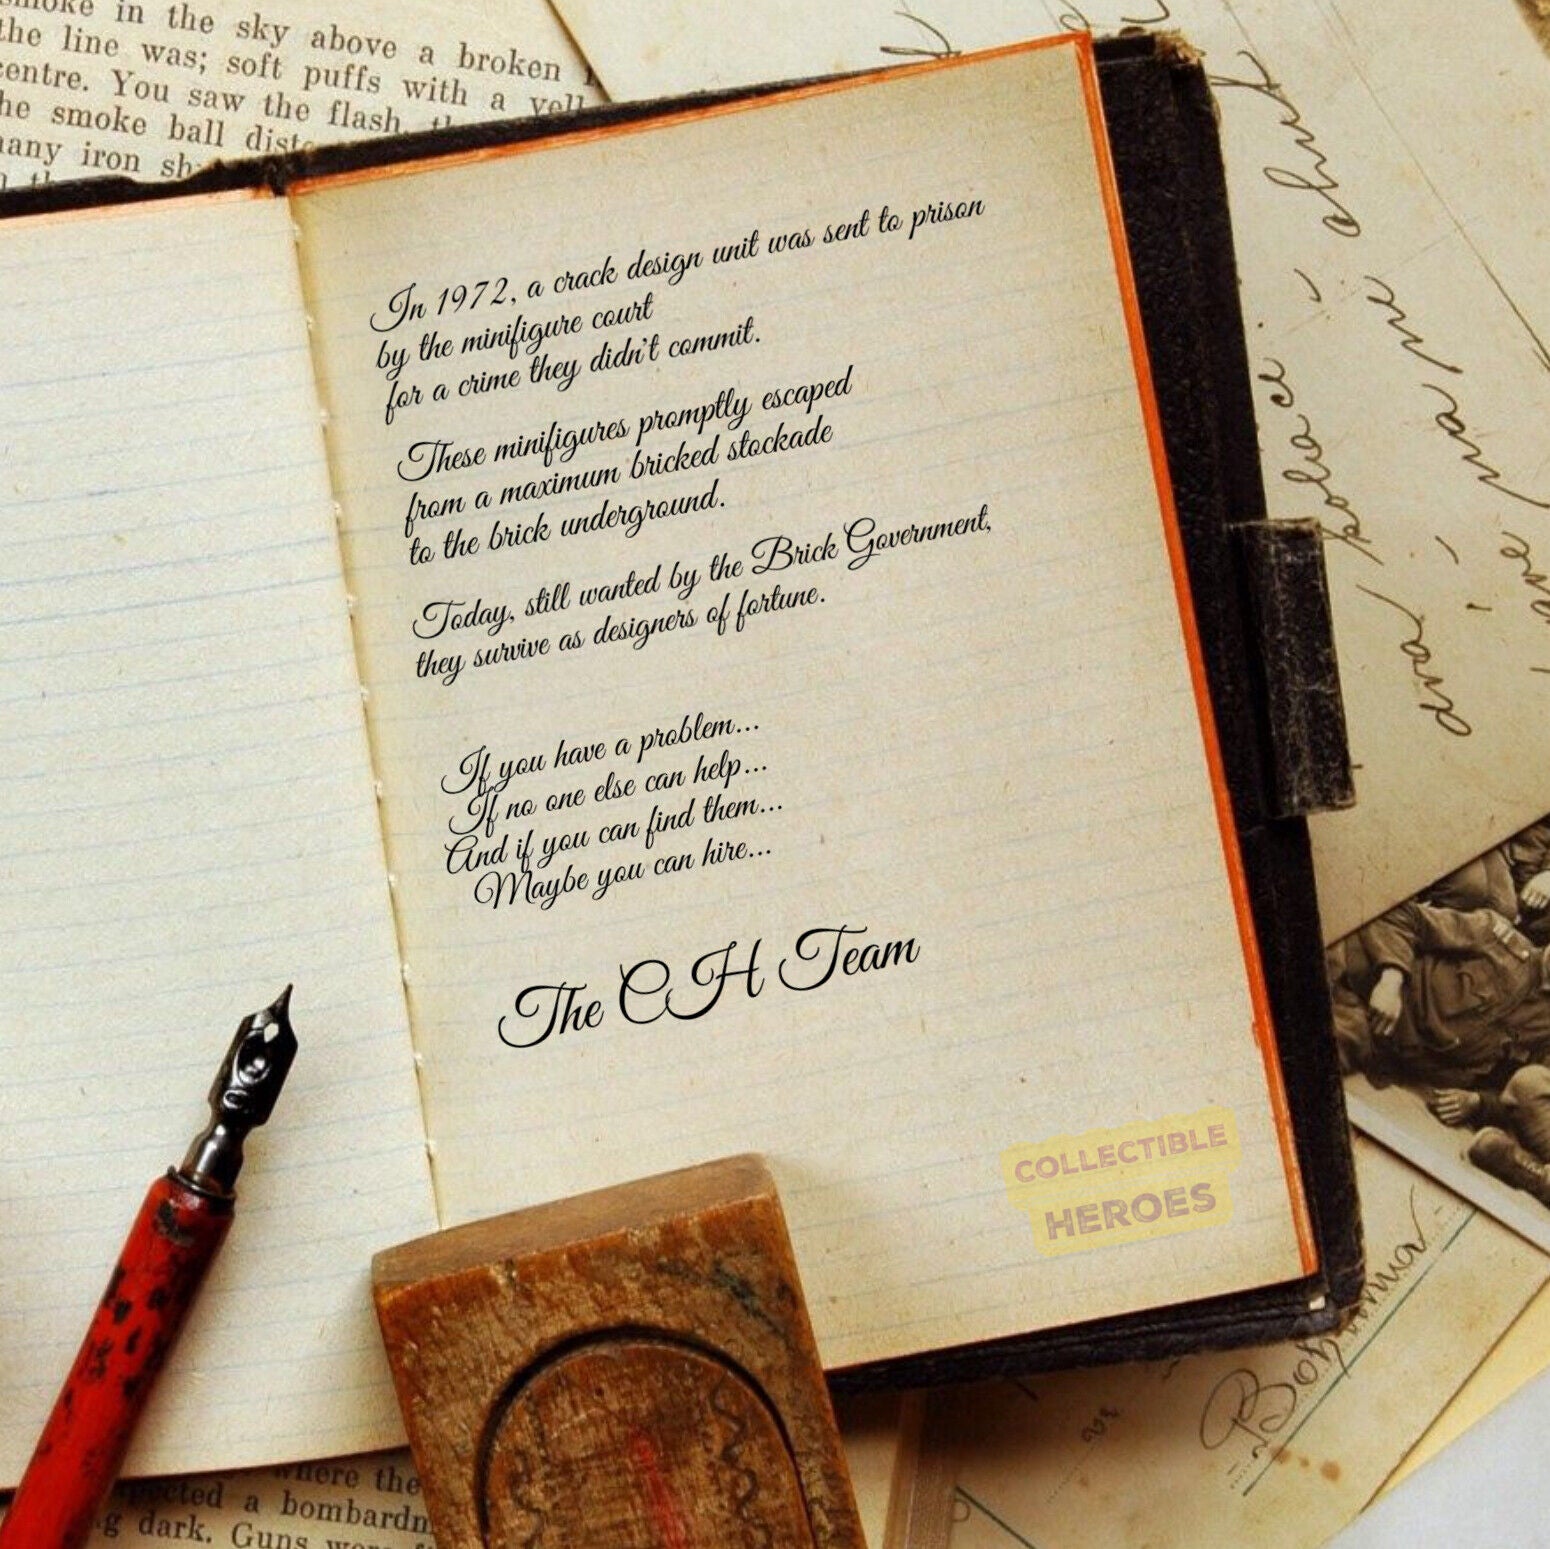 smoke in the sky above a broken
the line was; soft puffs with a yell
centre. You saw the flash,
he smoke ball
many iron
In 1972, a crack design unit was sent to prison
by the minifigure court
for a crime they didn't commit.
These minifigures promptly escaped
from a maximum bricked stockade
to the brick underground.
Today, still wanted by the Brick Government,
they survive as designers of fortune.
If you have a problem...
If no one else can help...
And if you can find them...
Maybe you can hire...
The CH Team
COLLECTIBLE
HEROES
where the
a
dark. Guns